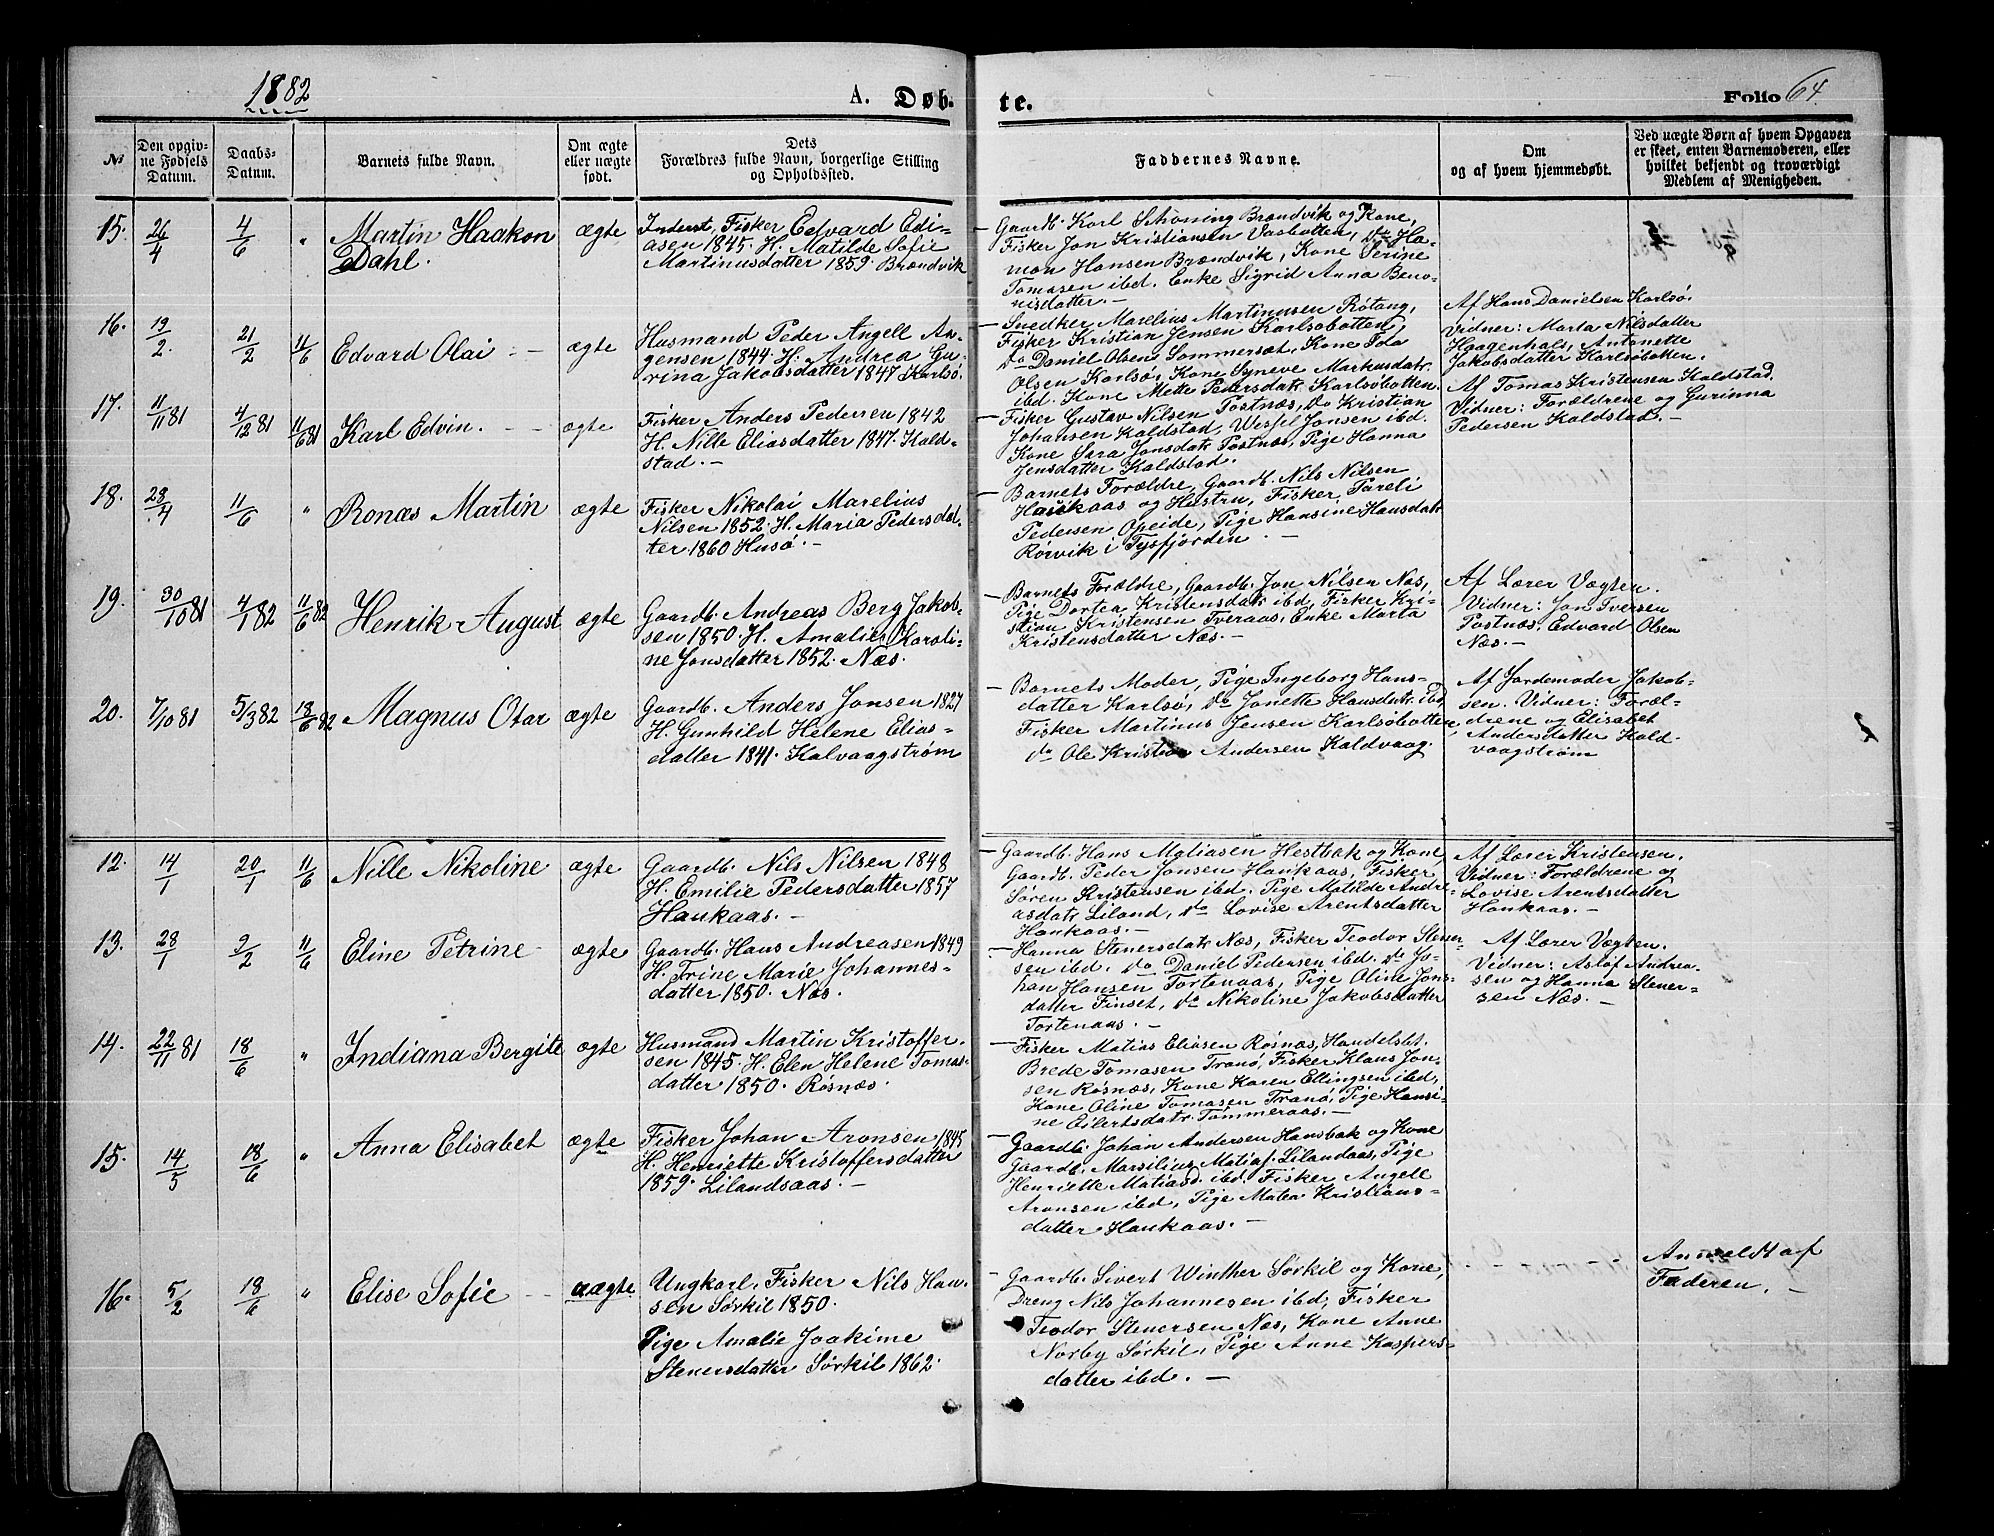 1882
A. Døb-
te.
Folio 64.
№
Den opgiv-
ne Fødsels
Datum.
Daabs-
Datum.
Barnets fulde Navn.
Om ægte
eller uægte
født.
Dets
Forældres fulde Navn, borgerlige Stilling
og Opholdssted.
Faddernes Navne.
Om
og af hvem hjemmedøbt.
Ved uægte Børn af hvem Opgaven
er skeet, enten Barnemoderen, eller
hvilket bekjendt og troværdigt
Medlem af Menigheden.
15. 26/4 4/6 " Martin Haakon
Dahl.
ægte
Inderst, Fisker Edvard Edi-
asen 1845. H. Matilde Sofie
Martinusdatter 1859. Brændvik
Gaardb. Karl Schøning Brændvik og Kone,
Fisker Jon Kristiansen Vaabotten, do Ha-
mon Hansen Brændvik, Kone Serine
Tomasen ibd. Enke Sigrid Anna Beno-
nisdatter. —
16. 19/2 21/2 11/6 Edvard Olai - —
ægte
Husmand Peder Angell An-
gensen 1844. H. Andrea Gu-
rina Jakobsdatter 1847 Karlsø.
— Snedker Marelius Martinusen Røtang,
Fisker Kristian Jensen Karlsøbotten,
do Daniel Olsen Sommerset, Kone Ida
Olsen Karlsø, Kone Syneve Markusdatr.
ibd. Kone Mette Pedersdatr. Karlsøbotten.
Af Hans Danielsen Karlsø.
Vidner: Marta Nilsdatter
Haagenhals, Antonette
Jakobsdatter Karlsøbotten.
17. 11/11 81 4/12 81 11/6 81 Karl Edvin. - —
ægte
Fisker Anders Pedersen 1842
H. Nille Eliasdatter 1847. Kald-
stad. —
— Fisker Gustav Nilsen Postnæs, do Kristian
Johansen Kaldstad, Wessel Jonsen ibd.
Kone Sara Jonsdatr. Postnæs, Pige Hanna
Jensdatter Kaldstad.
Af Tomas Kristensen Kaldstad.
Vidner: Forældrene og Gurinna
Pedersen Kaldstad. —
18. 28/4 11/6 " Ronæs Martin
ægte
Fisker Nikolai Marelius
Nilsen 1852. H. Maria Pedersdat-
ter 1860 Husø. —
— Barnets Forældre, Gaardb. Nils Nilsen
Haukaas og Hustru, Fisker Pareli
Pedersen Opeide, Pige Hansine Hansdatr.
Rørvik i Tysfjorden. —
19. 30/10 81 4/1 82 11/6 82 Henrik August
ægte
Gaardb. Andreas Berg Jakob-
sen 1850. H. Amalie Karoli-
ne Jonsdatter 1852. Næs.
— Barnets Forældre, Gaardb. Jon Nilsen Næs,
Pige Dortea Kristensdatr. ibd, Fisker Kri-
stian Kristensen Tveraas, Enke Marta
Kristensdatter Næs. —
Af Lærer Vægten.
Vidner: Jon Iversen
Postnæs, Edvard Olsen
Næs. —
20. 7/10 81 5/3 82 18/6 82 Magnus Otar
ægte
Gaardb. Anders Jonsen 1827
H. Gunhild Helene Elias-
datter 1841. Kalvaagstrøm
— Barnets Moder, Pige Ingeborg Hans-
datter Karlsø, do Jonette Hansdatr. ibd,
Fisker Martinus Jensen Karlsøbotten,
do Ole Kristian Andersen Kaldvaag.
Af Jordemoder Jakob-
sen. Vidner: Foræl-
drene og Elisabet
Andersdatter Kald-
vaagstrøm
12. 14/1 20/1 11/6 Nille Nikoline
ægte
Gaardb. Nils Nilsen 1848
H. Emilie Pedersdatter 1857
Haukaas. —
— Gaardb. Hans Matiasen Hestbak og Kone,
Gaardb. Peder Jonsen Haukaas, Fisker
Søren Kristensen ibd. Pige Matilde Andre-
asdatr. Liland, do Lovise Arentsdatter
Haukaas. —
Af Lærer Kristensen.
Vidner: Forældrene og
Lovise Arentsdatter
Haukaas. —
13. 28/1 9/2 11/6 Eline Petrine
ægte
Gaardb. Hans Andreasen 1849
H. Trine Marie Johannes-
datter 1850. Næs.
— Hanna Stenersdatr. Næs, Fisker Teodor Stener-
sen ibd. do Daniel Pedersen ibd. do Jo-
han Hansen Tortenaas, Pige Oline Jons-
datter Finset, do Nikoline Jakobsdatter
Tortenaas. —
Af Lærer Vægten.
Vidner: Asløf Andrea-
sen og Hanna Stener-
sen Næs. —
14. 22/11 81 18/6 " Indiana Bergite
ægte
Husmand Martin Kristoffer-
sen 1845. H. Elen Helene Tomas-
datter 1850. Røsnæs.
— Fisker Matias Eliasen Røsnæs, Handelsbt.
Brede Tomasen Tranø, Fisker Klaus Jon-
sen Røsnæs, Kone Karen Ellingsen ibd,
Kone Oline Tomasen Tranø, Pige Hansi-
ne Eilertsdatr. Tømmeraas. —
15. 14/5 18/6 " Anna Elisabet
ægte
Fisker Johan Aronsen 1845
H. Henriette Kristoffersdatter
1859. Lilandsaas. —
— Gaardb. Johan Andersen Hansbak og Kone
Gaardb. Marsilius Matias. Lilandaas, Pige
Henriette Matiasd. ibd. Fisker Angell
Aronsen ibd, Pige Matea Kristians-
datter Haukaas. —
16. 5/2 18/6 " Elise Sofie - —
uægte
Ungkarl, Fisker Nils Han-
sen Sørkil 1850.
Pige Amalie Joakime
Stenersdatter Sørkil 1862.
— Gaardb. Sivert Winther Sørkil og Kone,
Dreng Nils Johannesen ibd, Fisker
Teodor Stenersen Næs, Kone Anne
Norby Sørkil, Pige Anne Kaspers-
datter ibd. —
Anmeldt af
Faderen. —